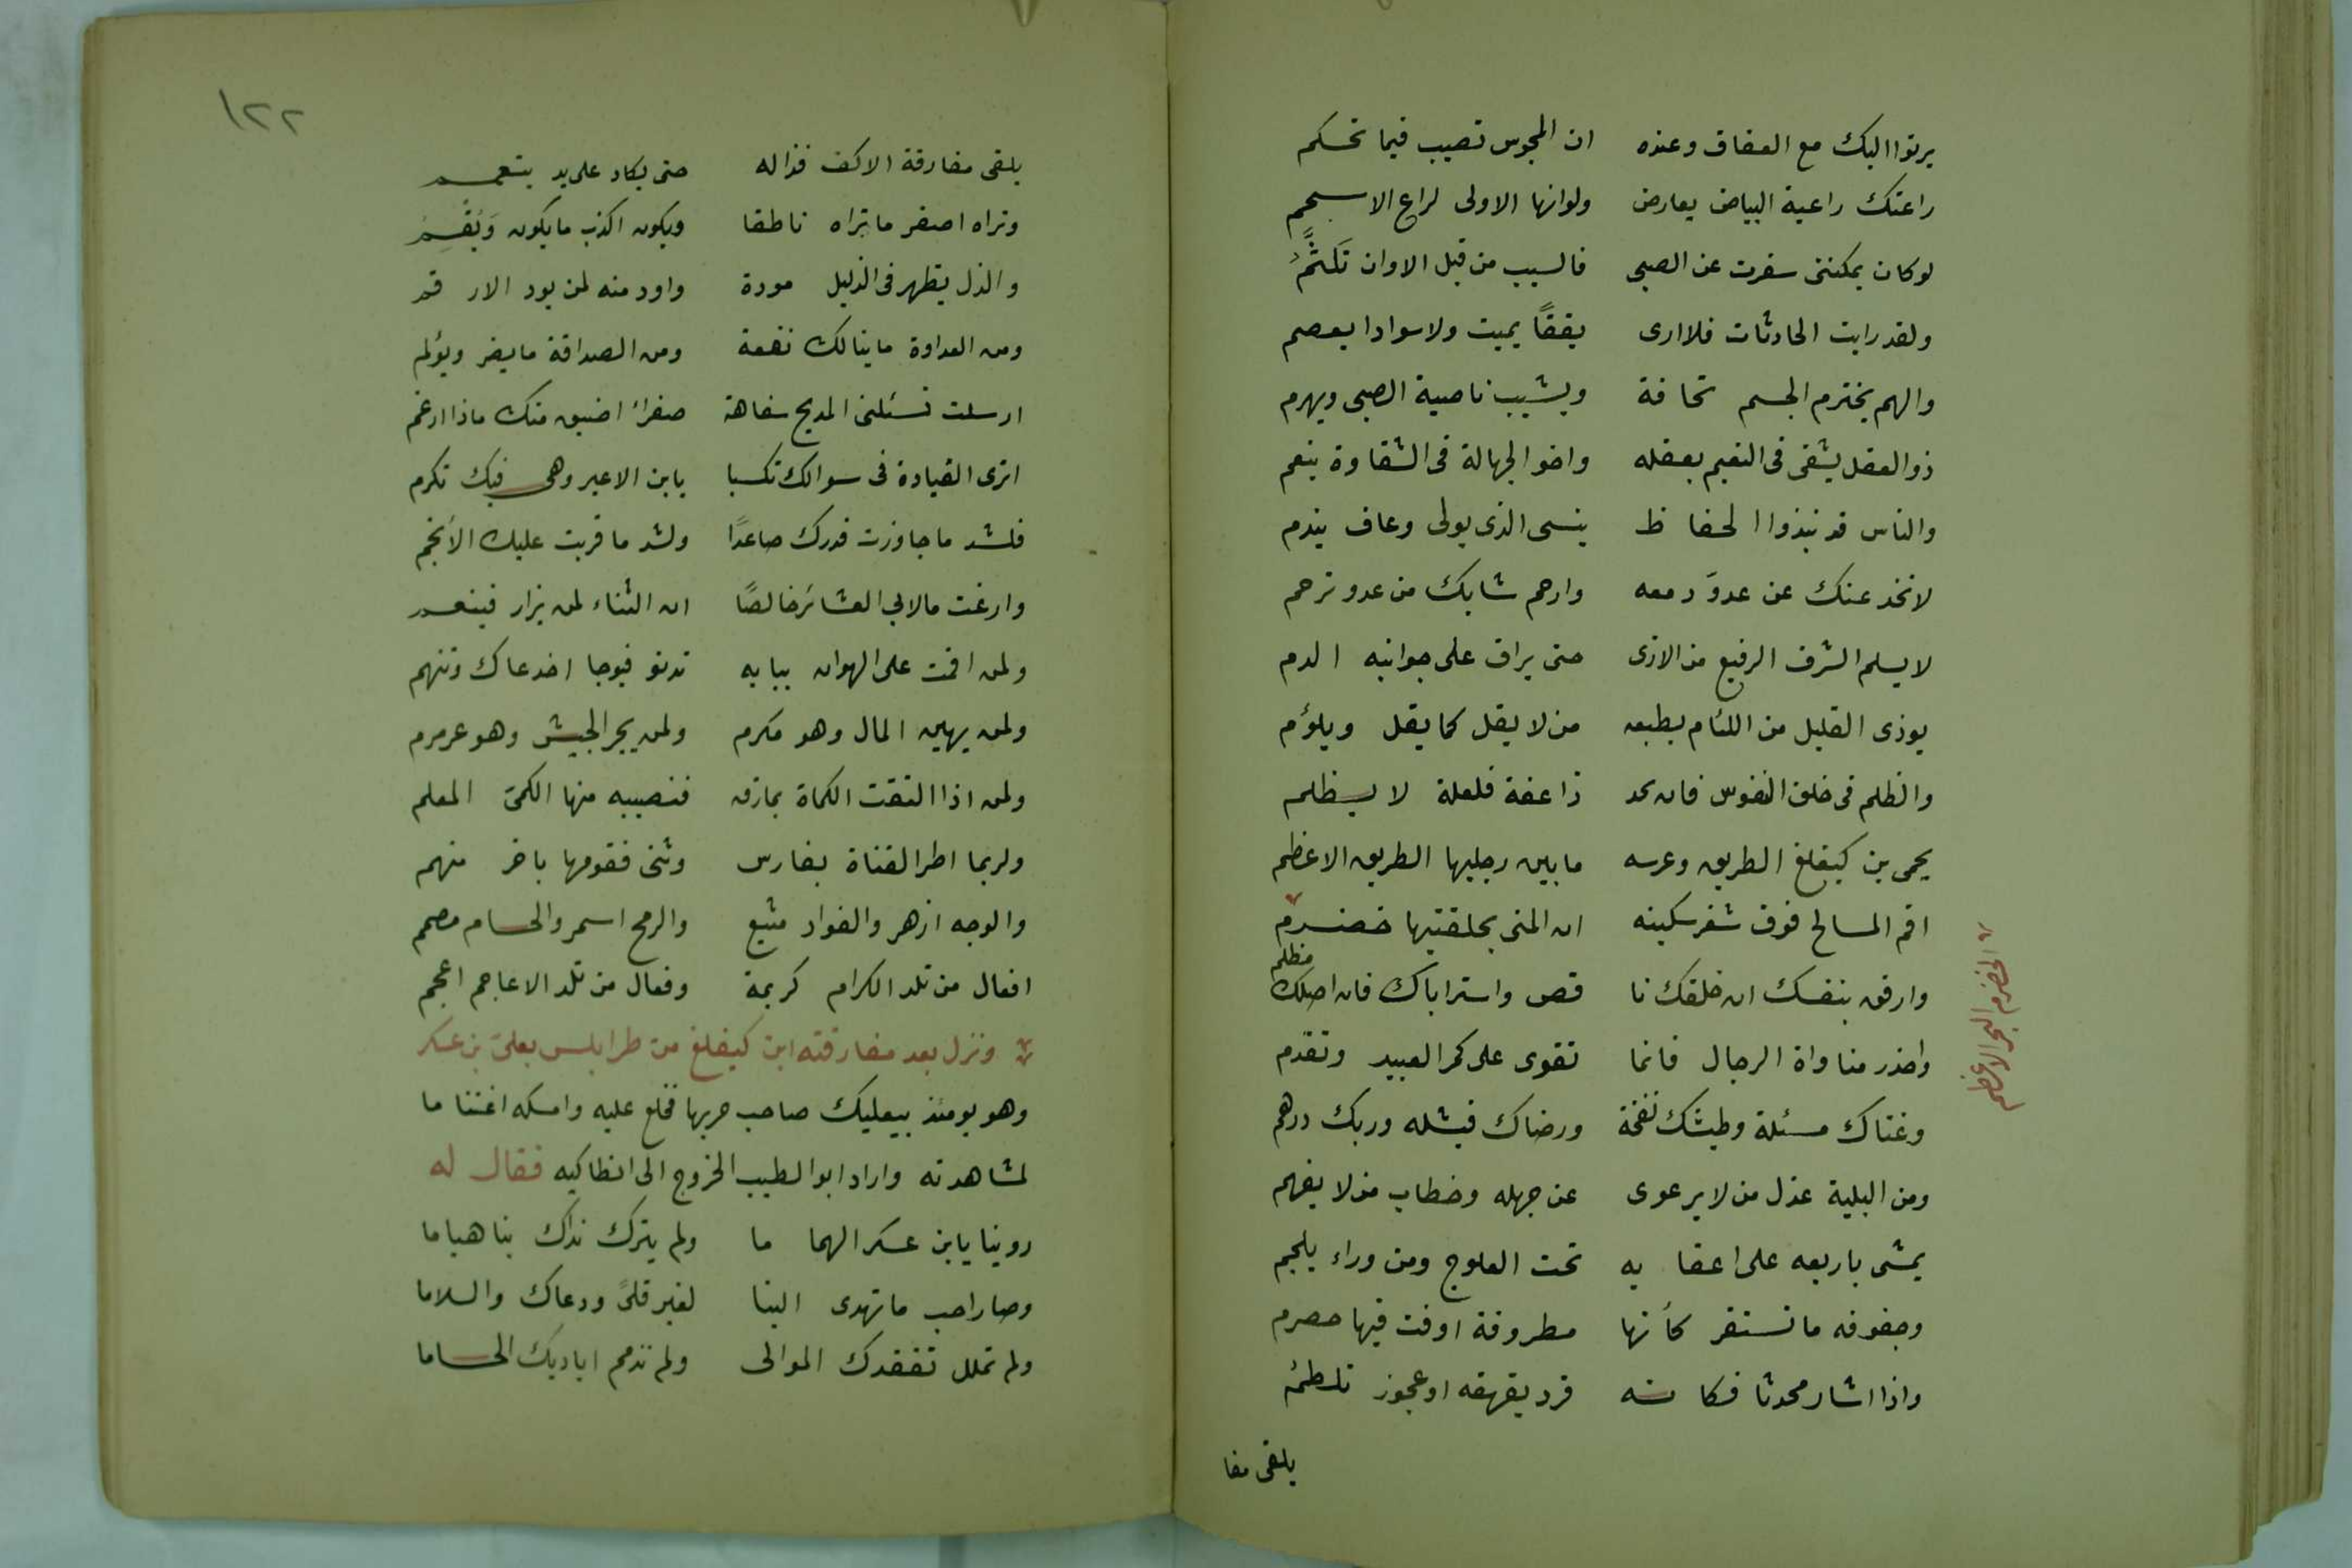 يرنوا اليك مع العفاف وعنده ان المجوس تصيب فيما تحكم
راعتك راعية البياض يعارض ولو انها الاولى لراع الاسحم
لو كان يمكننى سفرت عن الصبى فالسيب من قبل الاوان تَلَثُّمُ
ولقد رايت الحادثات فلا ارى يققًا يميت ولا سوادا يعصم
والهم يخترم الجسم نحافة ويشيب ناصية الصبى ويهرم
ذو العقل يشقى فى النعيم بعقله واخو الجهالة فى الشقاوة ينعم
والناس قد نبذوا الحفاظ ينسى الذى يولى وعاف يندم
لا تخدعنك عن عدوّ دمعه وارحم شابك من عدو ترحم
لا يسلم الشرف الرفيع من الاذى حتى يراق على جوانبه الدم
يوذى القليل من اللئام بطبعه من لا يقل كما يقل ويلؤم
والظلم فى خلق النفوس فان تجد ذا عفة فلعلة لا يظلم
يحمى بن كيغلغ الطريق وعرسه ما بين رجليها الطريق الاعظم
اقم المسالح فوق شفر سكينه ان المنى بحلقتيها خضرم
وارفق بنفسك ان خلقك نا قص واستر اباك فان اصلك مظلم
واحذر مناواة الرجال فانما تقوى على كمر العبيد وتقدم
وغناك مسئلة وطيشك نفخة ورضاك فيشله وربك درهم
ومن البلية عذل من لا يرعوى عن جهله وخطاب من لا يفهم
يمشى باربعه على اعقابه تحت العلوج ومن وراء يلجم
وجفوفه ما تستقر كأنها مطروفة او فت فيها حصرم
واذا اشار محدثا فكانه قرد يقهقه او عجوز تلطمُ
يلقى مفا
؞ الخضرم البحر الاعظم
١٢٢
يلقى مفارقة الاكف قذاله حتى يكاد على يد يتعمم
وتراه اصغر ما تراه ناطقا ويكون اكذب ما يكون وَيُقْسِمُ
والذل يظهر فى الذليل مودة واود منه لمن يود الارقم
ومن العداوة ما ينالك نفعة ومن الصداقة ما يضر ويؤلم
ارسلت تسئلنى المديح سفاهة صفراءُ اضيق منك ماذا ازعم
اترى القيادة فى سواك تكسبا يا بن الاعير وهى فيك تكرم
فلشد ما جاوزت قدرك صاعدًا ولشد ما قربت عليك الأنجم
وارغت ما لابى العشائر خالصًا ان الثناء لمن يزار فينعم
ولمن اقمت على الهوان ببابه تدنو فيوجا اخدعاك وتنهم
ولمن يهين المال وهو مكرم ولمن يجر الجيش وهو عرمرم
ولمن اذا التقت الكماة بمازق فنصيبه منها الكمىّ المعلم
ولربما اطر القناة بفارس وثنى فقومها باخر منهم
والوجه ازهر والفواد مشيع والرمح اسمر والحسام مصمم
افعال من تلد الكرام كريمة وفعال من تلد الاعاجم اعجم
؞ ونزل بعد مفارقته ابن كيغلغ من طرابلس بعلىّ بن عسكر
وهو يومئذ ببعلبك صاحب حربها فخلع عليه وامسكه اغتناما
لمشاهدته واراد ابو الطيب الخروج الى انطاكيه فقال له
روينا يا بن عسكر الهما ما ولم يترك نداك بنا هياما
وصار احب ما تهدى الينا لغير قلىً ودعاك والسلاما
ولم تملل تفقدك الموالى ولم تذمم اياديك الحساما